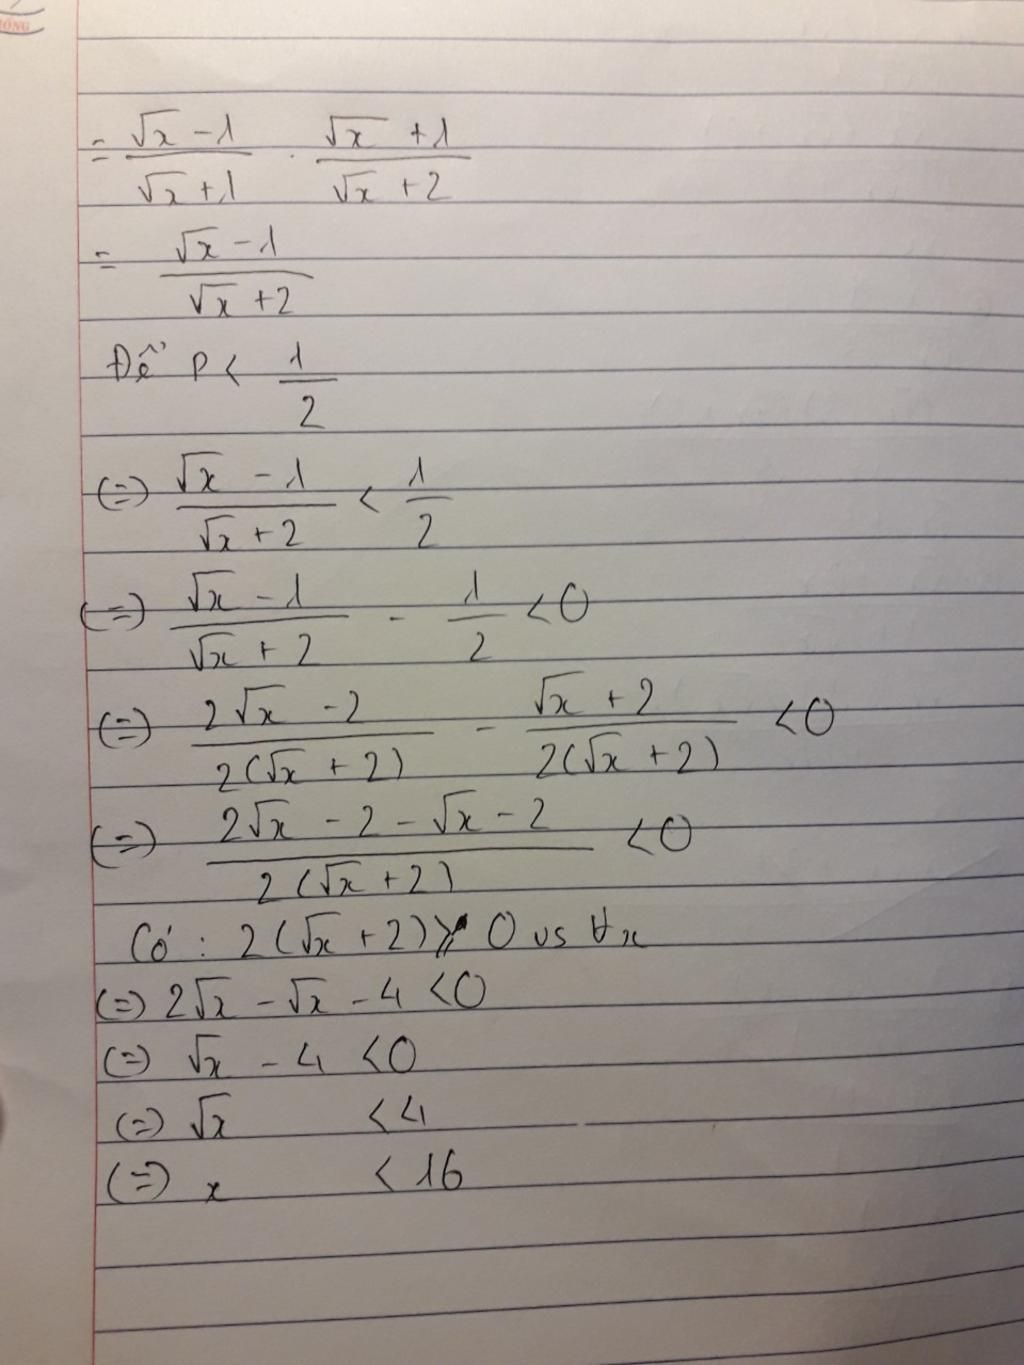 ỐNG
= (√x - 1)/(√x + 1) . (√x + 1)/(√x + 2)
= (√x - 1)/(√x + 2)
Để P < 1/2
(=) (√x - 1)/(√x + 2) < 1/2
(=) (√x - 1)/(√x + 2) - 1/2 < 0
(=) (2√x - 2)/(2(√x + 2)) - (√x + 2)/(2(√x + 2)) < 0
(=) (2√x - 2 - √x - 2)/(2(√x + 2)) < 0
Có : 2(√x + 2) > 0 vs ∀x
(=) 2√x - √x - 4 < 0
(=) √x - 4 < 0
(=) √x < 4
(=) x < 16